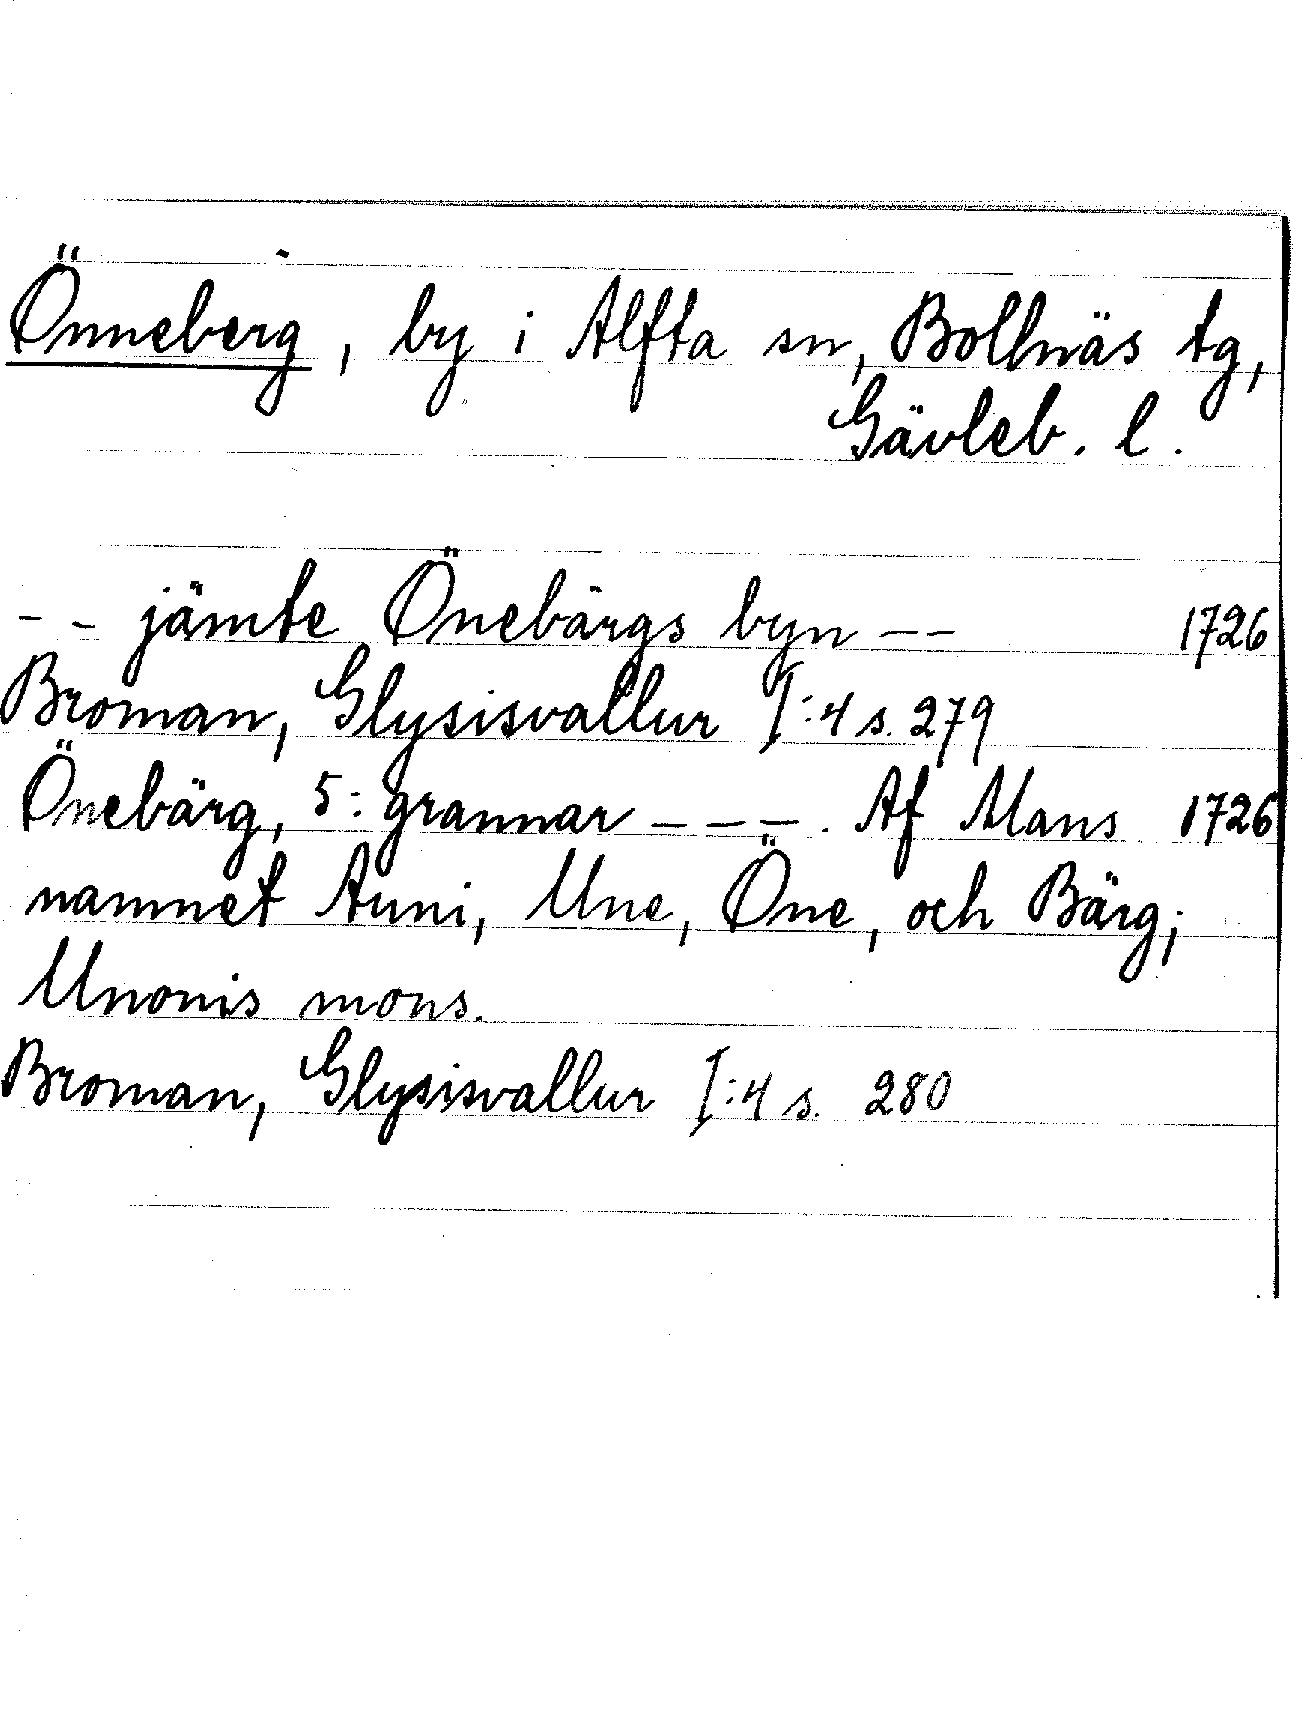 Önneberg, by i Alfta sn, Bollnäs tg,
Gävleb. l.
-- jämte Önebärgs byn -- 1726
Broman, Glysisvallur I:4 s. 279
Önebärg, 5: grannar ---. Af Mans 1726
namnet Auni, Une, Öne, och Bärg;
Unonis mons.
Broman, Glysisvallur I:4 s. 280